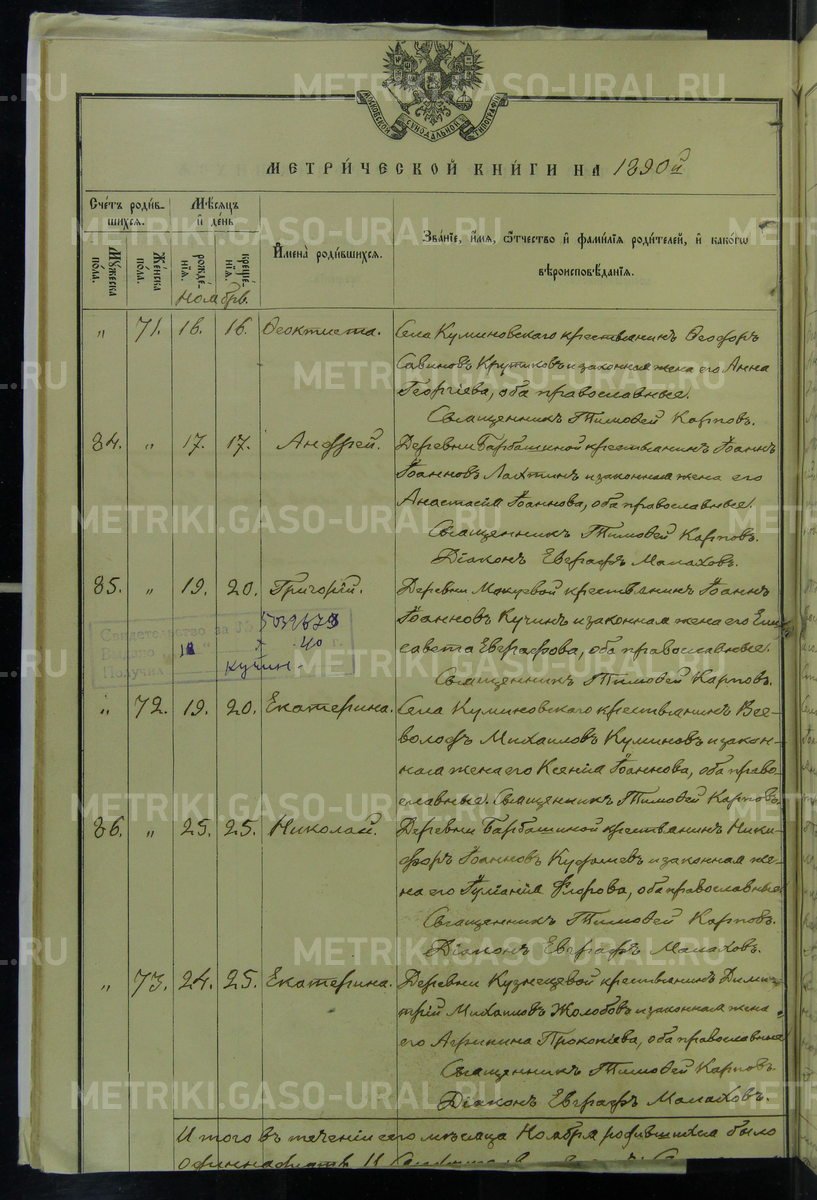 МОСКОВСКОЙ СУНОДАЛЬНОЙ ТИПОГРАФІИ
МЕТРИ́ЧЕСКОЙ КНИ́ГИ НА 1890й
Сче́тъ роди́в-
шихся.
Мꙋ́жеска по́ла.
Же́нска по́ла.
М҃ѣсяцъ
и҆ де́нь
рожде́-
нїѧ.
креще́-
нїѧ.
Ноѧбрь.
И҆мена̀ роди́вшихся.
Зва́нїе, и҆́мѧ, ѻ҆́тчество и҆ фами́лїѧ роди́телей, и҆ како́гѡ
вѣроисповѣ́данїѧ.
" 71. 16. 16. Ѳеоктиста. Села Куминовскаго крестьянинъ Ѳеодоръ
Савиновъ Крутиковъ и законная жена его Анна
Георгіева, оба православные.
Священникъ Тимоѳей Карповъ.
84. " 17. 17. Андрей. Деревни Барбашиной крестьянинъ Іоаннъ
Іоанновъ Лахтинъ и законная жена его
Анастасія Іоаннова, оба православные.
Священникъ Тимоѳей Карповъ.
Діаконъ Евграфъ Малаховъ.
85. " 19. 20. Григорій. Деревни Мокуевой крестьянинъ Іоаннъ
Іоанновъ Кучинъ и законная жена его Ели-
савета Евграфова, оба православные.
Священникъ Тимоѳей Карповъ.
Свидетельство за №
Выдано " 18 " X 40 г.
Получил Кучин
" 72. 19. 20. Екатерина. Села Куминовскаго крестьянинъ Все-
володъ Михаиловъ Куминовъ и закон-
ная жена его Ксенія Іоаннова, оба право-
славные. Священникъ Тимоѳей Карповъ.
86. " 25. 25. Николай. Деревни Барбашиной крестьянинъ Ники-
форъ Іоанновъ и законная же-
на его Іуліанія Флорова, оба православные
Священникъ Тимоѳей Карповъ.
Діаконъ Евграфъ Малаховъ.
" 73. 24. 25. Екатерина. Деревни Кузнецевой крестьянинъ Дими-
трій Михаиловъ Жолобовъ и законная жена
его Агрипина Прокопіева, оба православные
Священникъ Тимоѳей Карповъ.
Діаконъ Евграфъ Малаховъ.
Итого въ теченіи сего мѣсяца Ноября родившихся было
METRIKI.GASO-URAL.RU